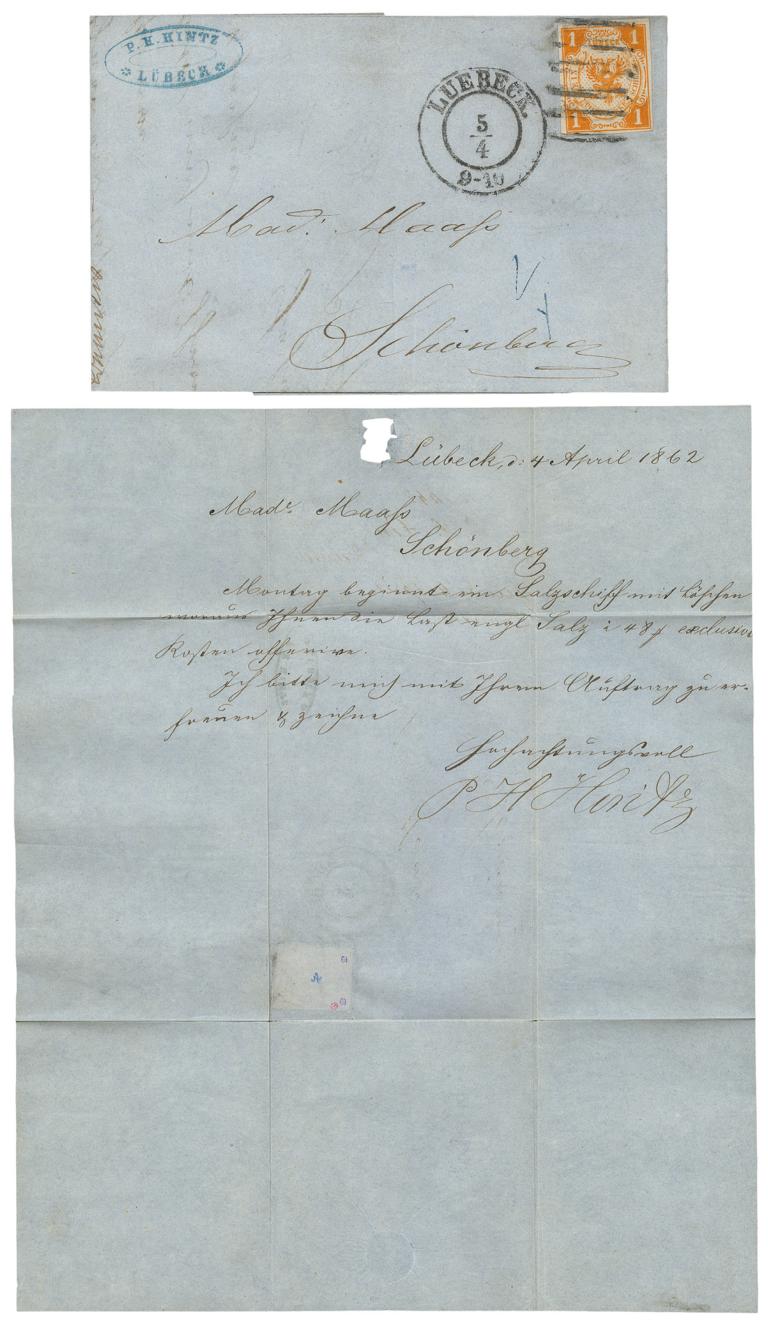 P. H. HINTZ
LÜBECK
LUEBECK.
5
4
9-10
1 1
1 1
Mad: Maaß
Schönberg
Lübeck, d: 4 April 1862
Made Maaß
Schönberg
Montag beginnt ein Salzschiff mit löschen
woraus Ihnen die Last engl Salz à 48 exclusive
Kosten offerire.
Ich bitte mich mit Ihrem Auftrag zu er-
freuen & zeichne
hochachtungsvoll
P H Hintz